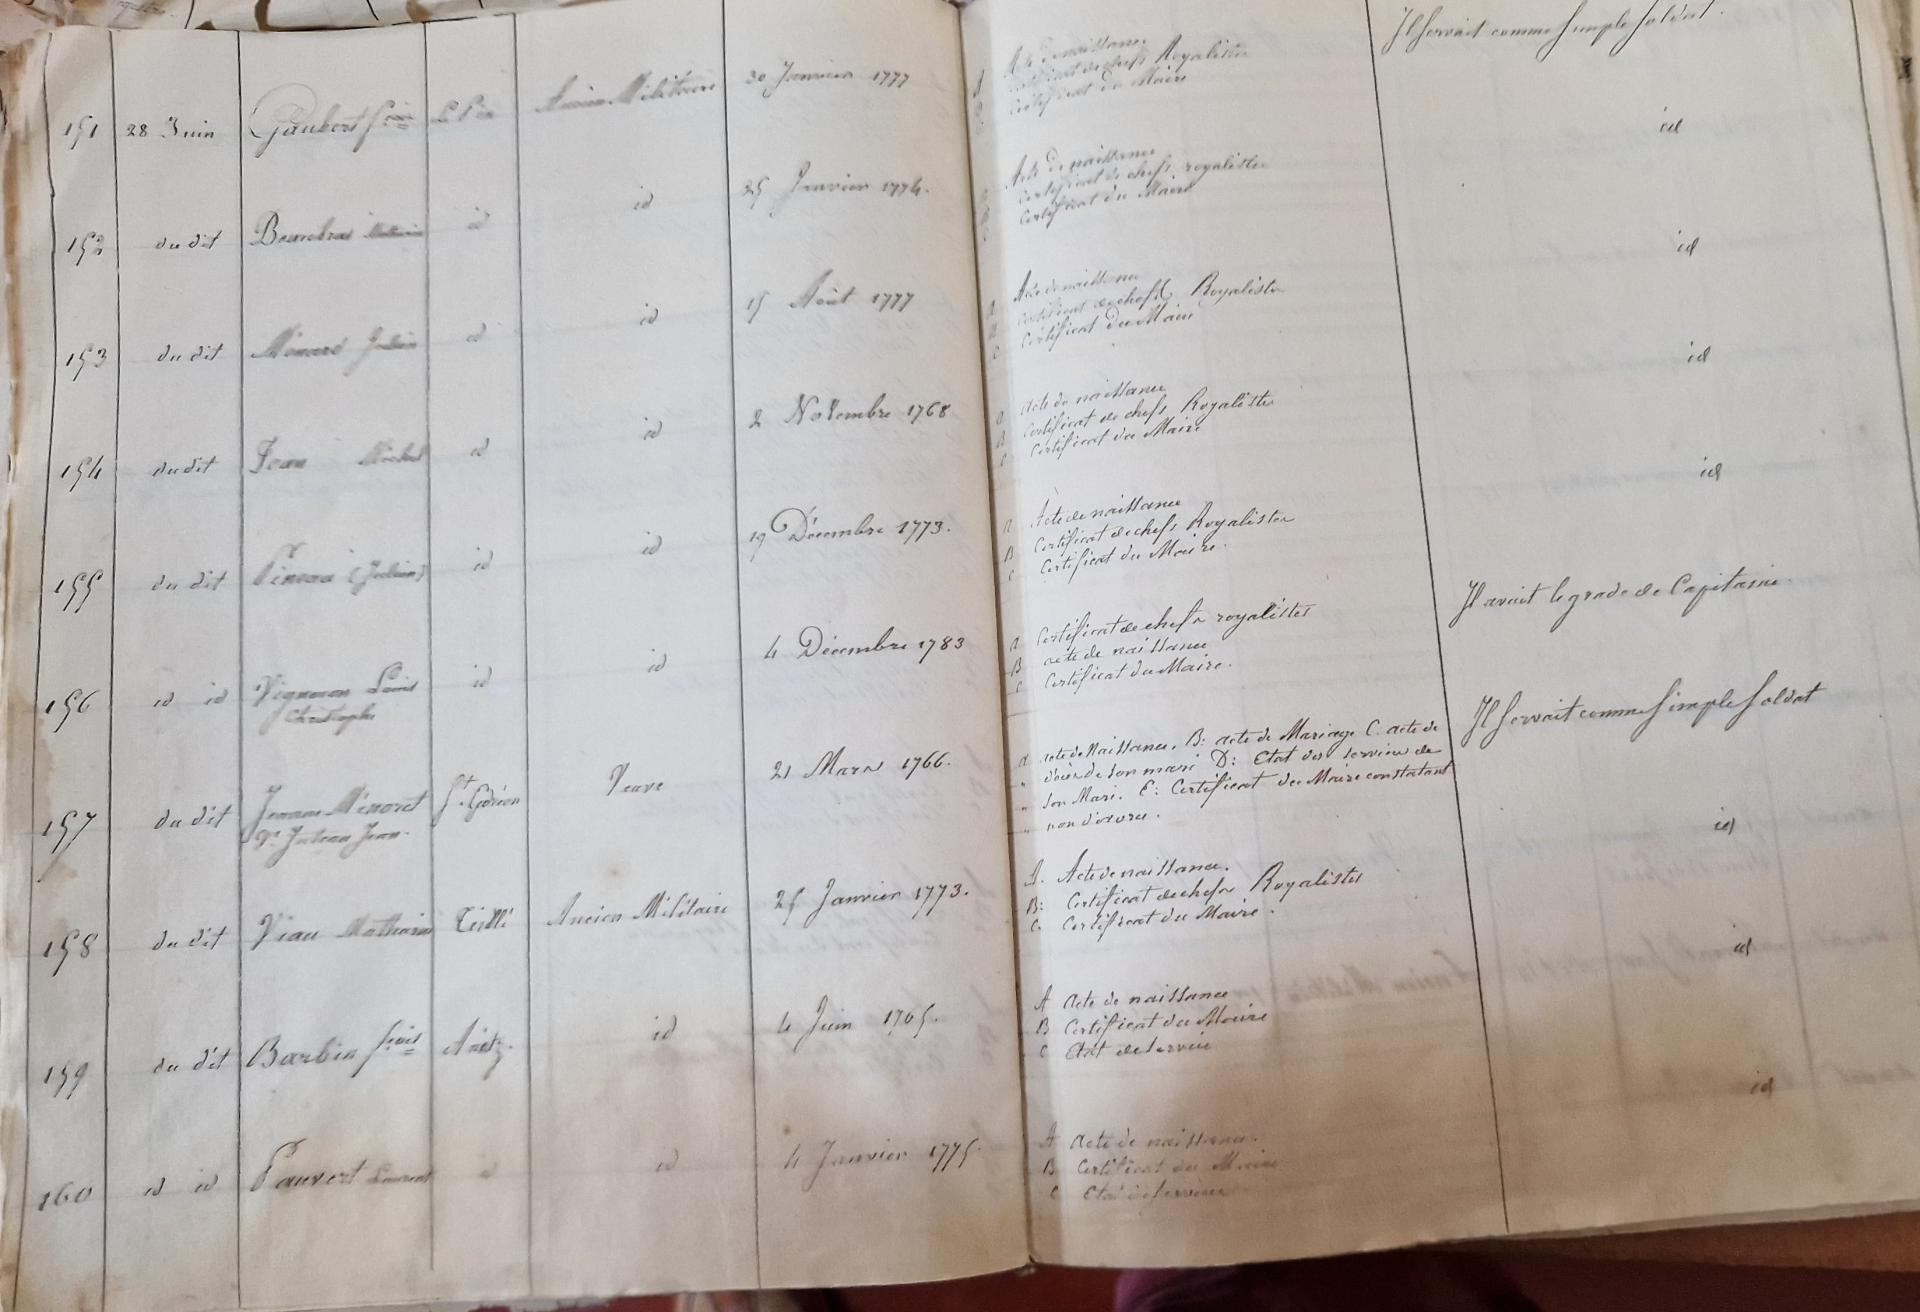 Il servait comme simple soldat.
151 28 Juin Gaubert fcois Le Pin Ancien Militaire 30 Janvier 1777
Acte de naissance
Certificat de chefs Royalistes
Certificat du Maire
id
152 du dit id id 25 Janvier 1774.
Acte de naissance
Certificat de chefs royalistes
Certificat du Maire
id
153 du dit Menard Julien id id 15 Août 1777
Acte de naissance
Certificat de chefs Royalistes
C Certificat du Maire
id
154 du dit Jean Michel id id 2 Novembre 1768
a acte de naissance
B Certificat de chefs Royalistes
C Certificat du Maire
id
155 du dit Pineau (Julien) id id 19 Décembre 1773.
A Acte de naissance
B Certificat de chefs Royalistes
C Certificat du Maire.
156 id id Vigneron Louis id id 4 Décembre 1783
Christophe
A Certificat de chefs royalistes
B acte de naissance
C Certificat du Maire.
Il avait le grade de Capitaine.
157 du dit Jeanne Menoret St. Géréon Veuve 21 Mars 1766.
Ve Juleau Jean.
A acte de Naissance. B: acte de Mariage C. acte de
" décès de son mari D: Etat des services de
" son Mari. E: Certificat du Maire constatant
" non divorcée.
Il servait comme simple soldat
158 du dit Viau Mathurin Teillé Ancien Militaire 25 Janvier 1773.
A. Acte de naissance.
B: Certificat de chefs Royalistes
C. Certificat du Maire.
id
159 du dit Barbin fcois Anetz. id 4 Juin 1765.
A Acte de naissance
B Certificat du Maire
C Etat de service
id
160 id id Pauvert Laurent id id 4 Janvier 1775.
A Acte de naissance.
B Certificat du Maire
C Etat de services
id